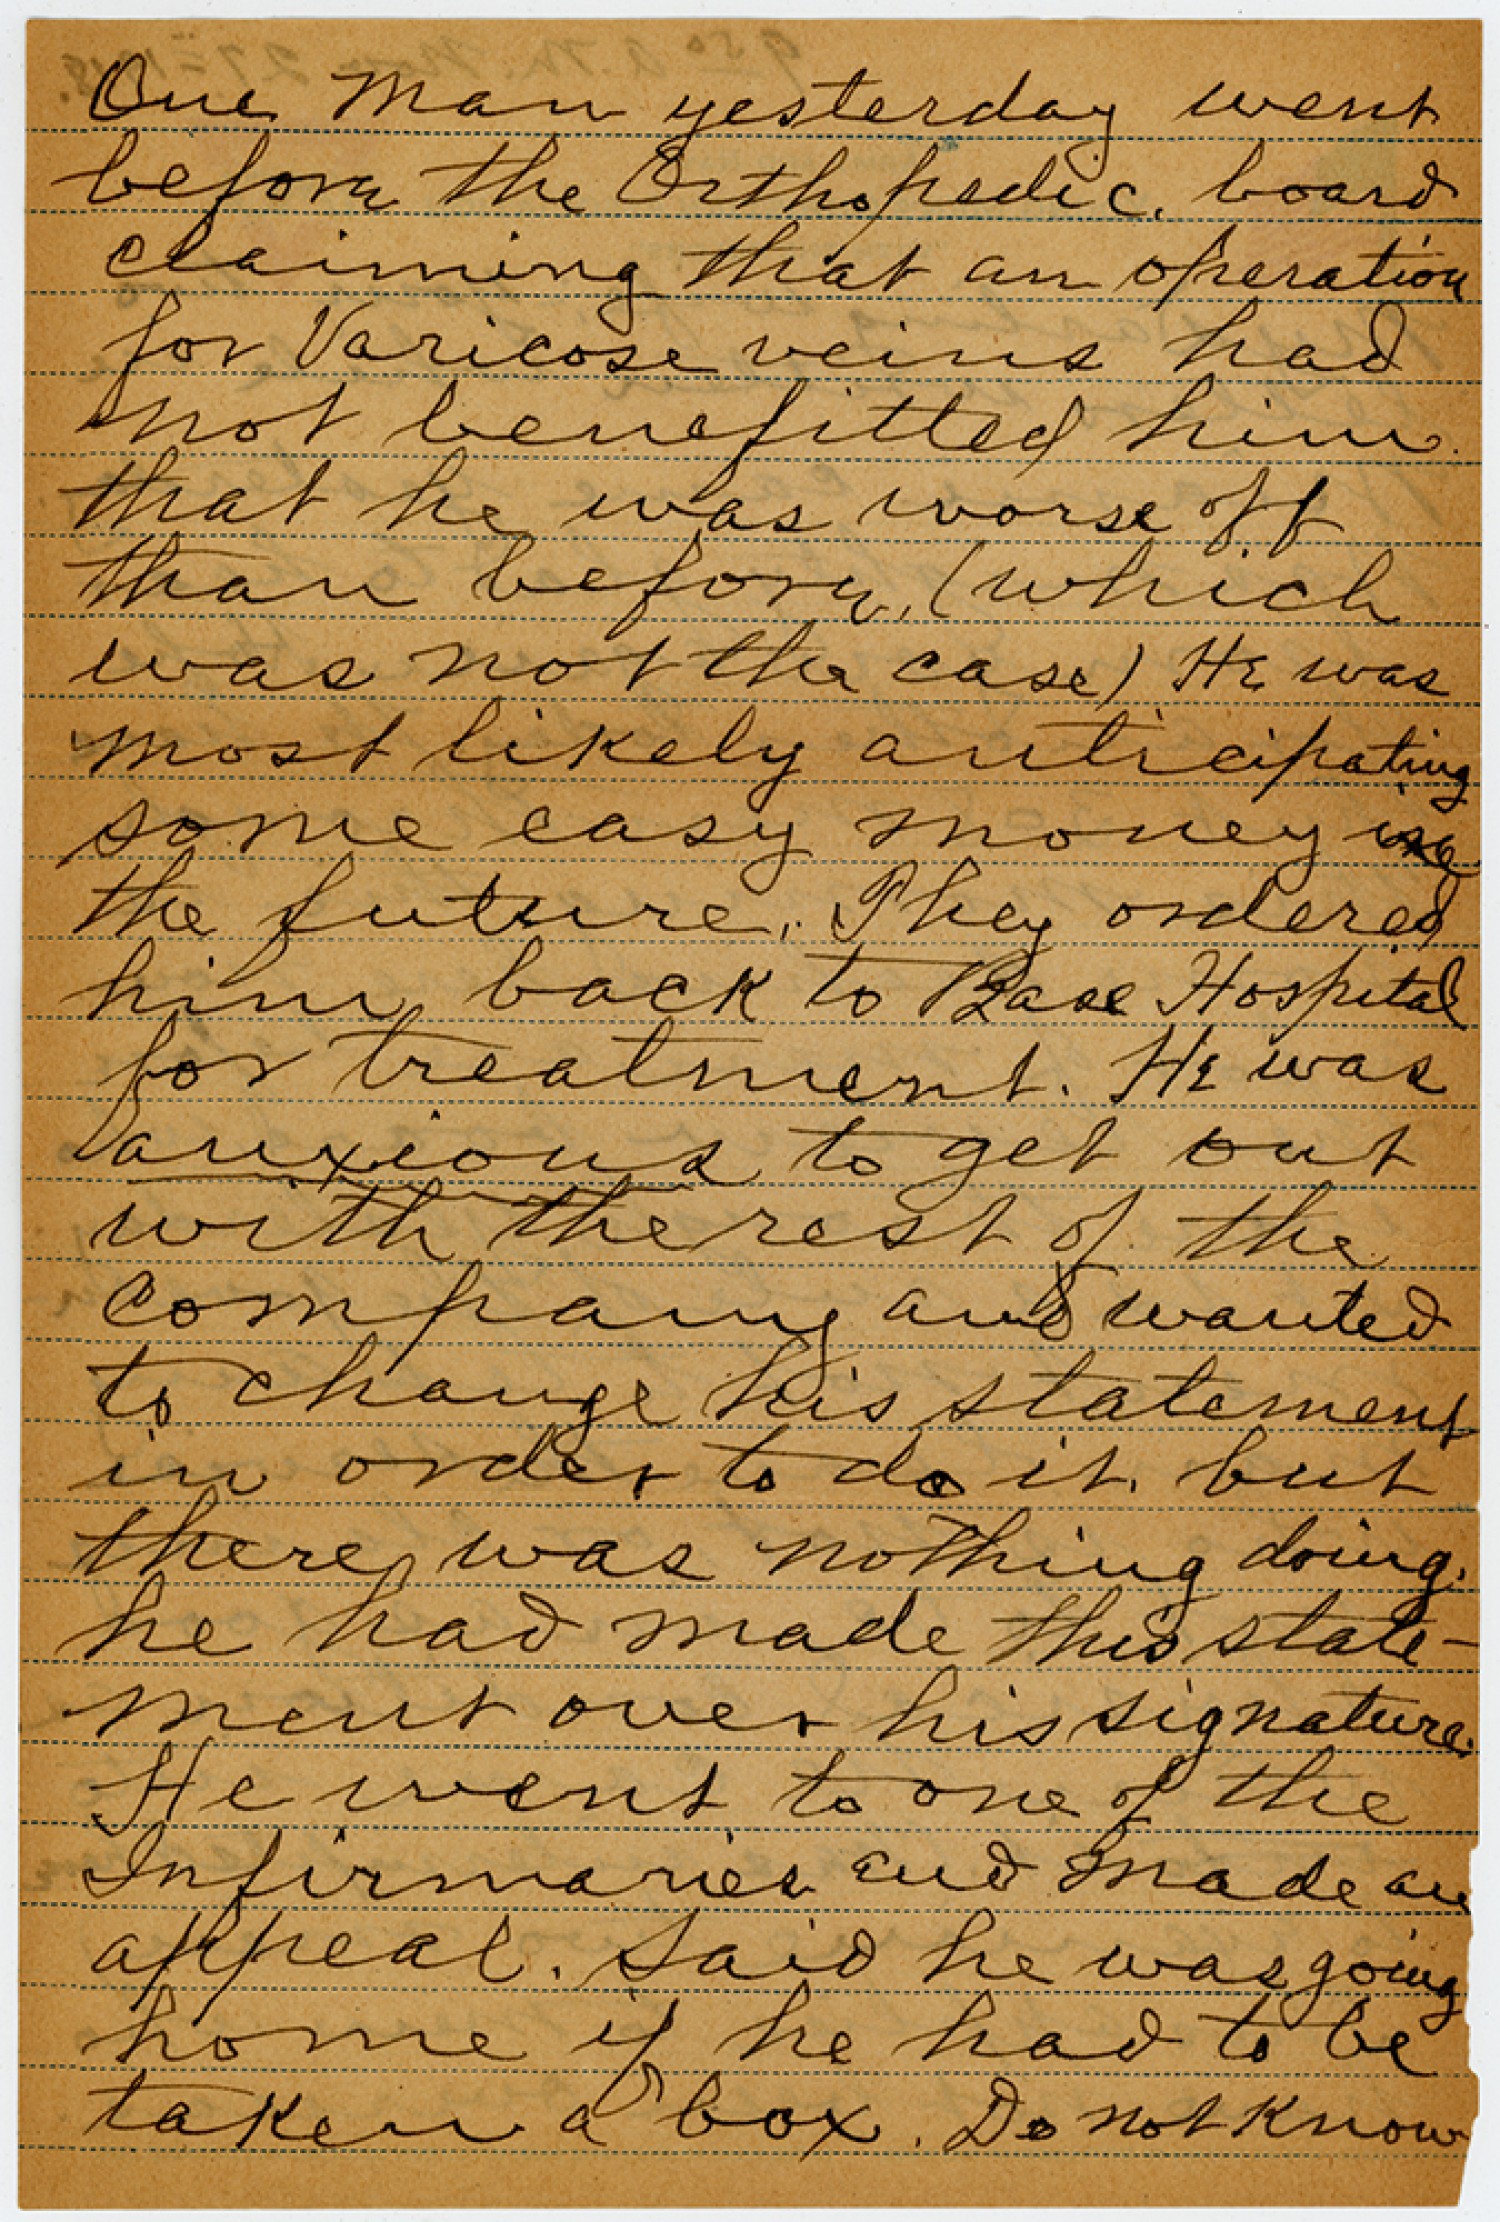 One man yesterday went
before the Orthopedic. board
claiming that an operation
for Varicose veins had
not benefitted him.
that he was worse off
than before, (which
was not the case) He was
most likely anticipating
some easy money in
the future. They ordered
him back to Base Hospital
for treatment. He was
anxious to get out
with the rest of the
company and wanted
to change his statement
in order to do it. but
there was nothing doing.
he had made this state-
ment over his signature.
He went to one of the
Infirmaries and made an
appeal. Said he was going
home if he had to be
taken a box. Do not know